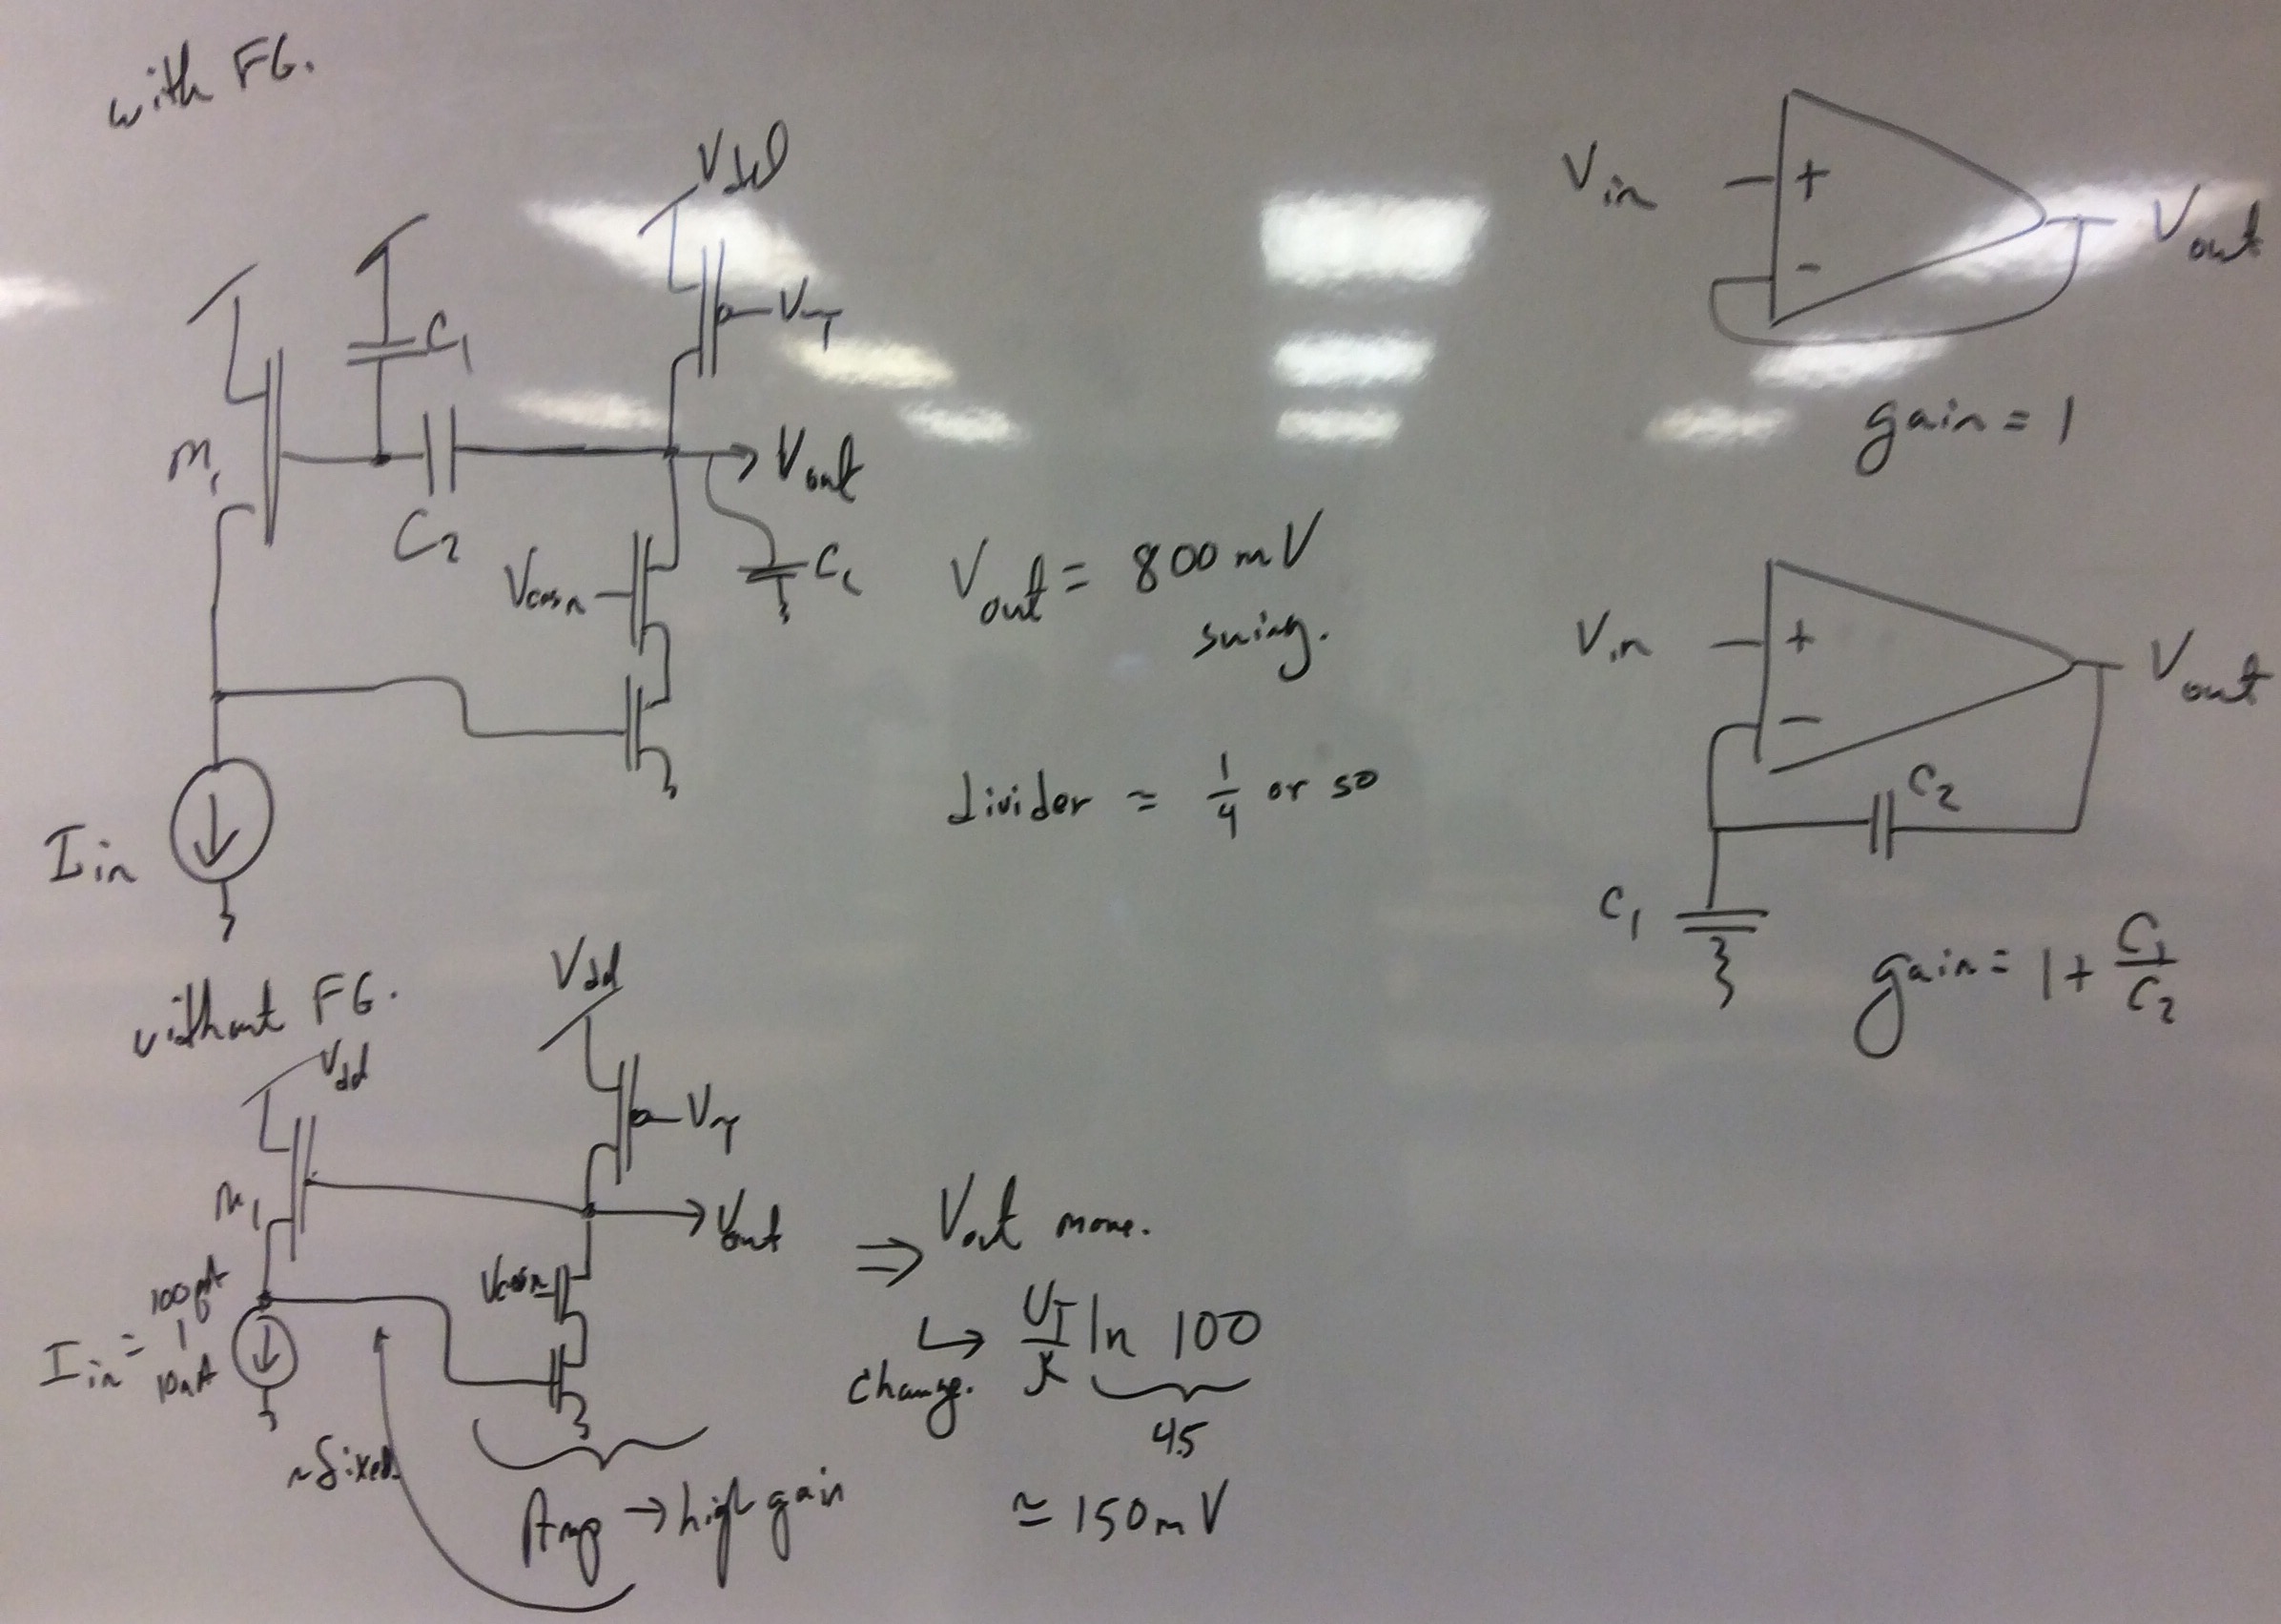 with FG.
Vdd
Vτ
C1
M1
C2
Vout
Vcasn
CL
Vout = 800 mV
swing.
divider ≈ 1/4 or so
Iin
Vin
+
-
Vout
gain = 1
Vin
+
-
Vout
C2
C1
gain = 1 + C1/C2
without FG.
Vdd
Vdd
Vτ
M1
Vout
Vcasn
Iin =
10nA
~fixed
Amp → high gain
⇒ Vout move.
↳ UT/κ ln 100
change.
4.5
≃ 150mV